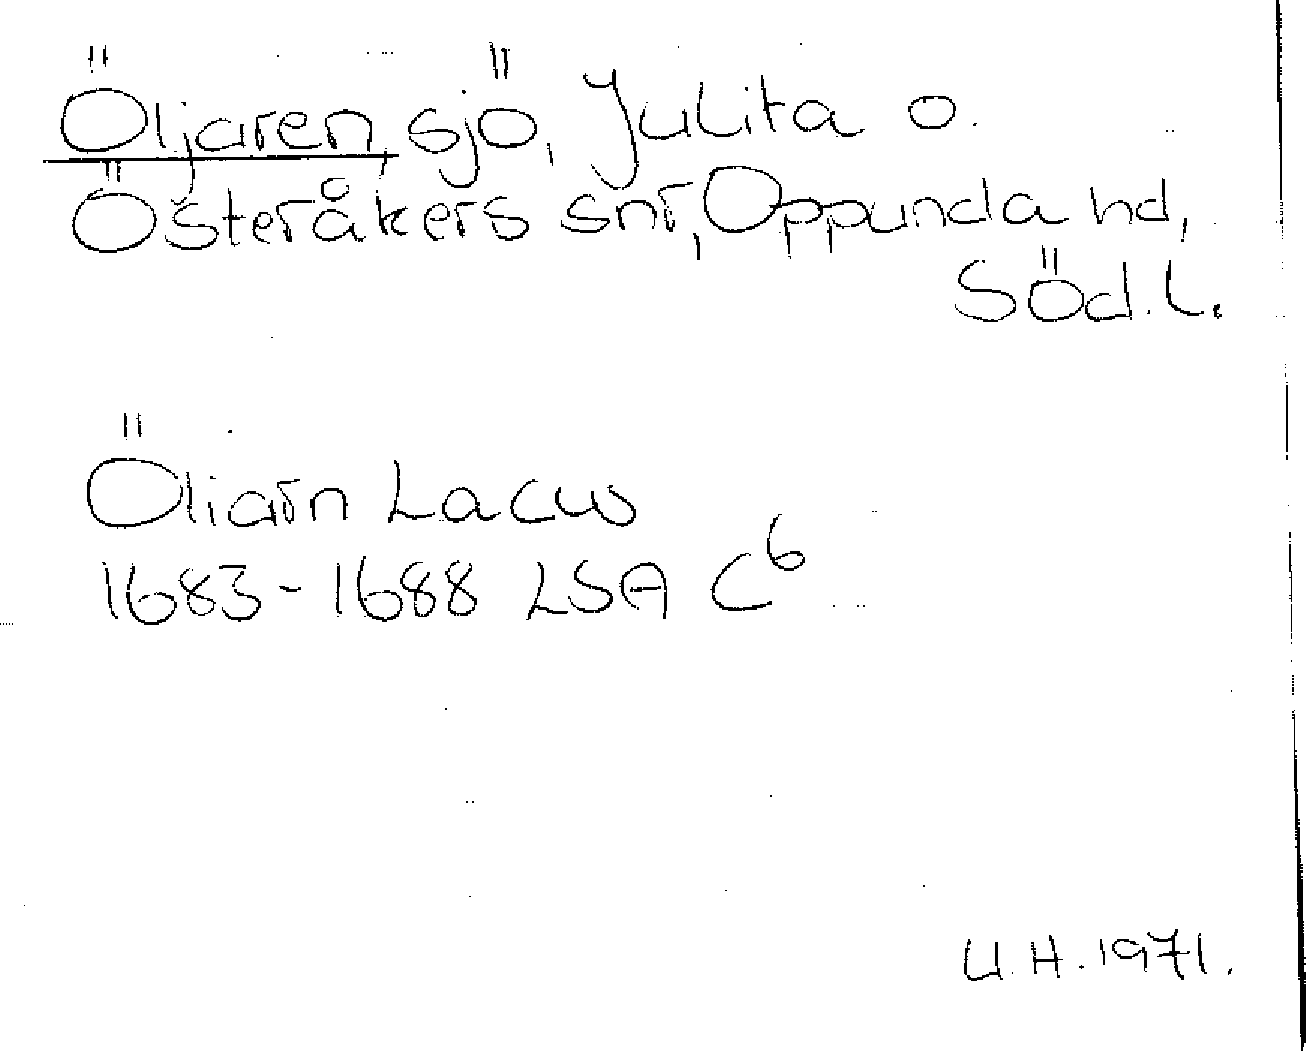 Öljaren, sjö, Julita o.
Österåkers snr, Oppunda hd,
Söd.l.
Öliarn Lacus
1683-1688 LSA C⁶
U.H. 1971.